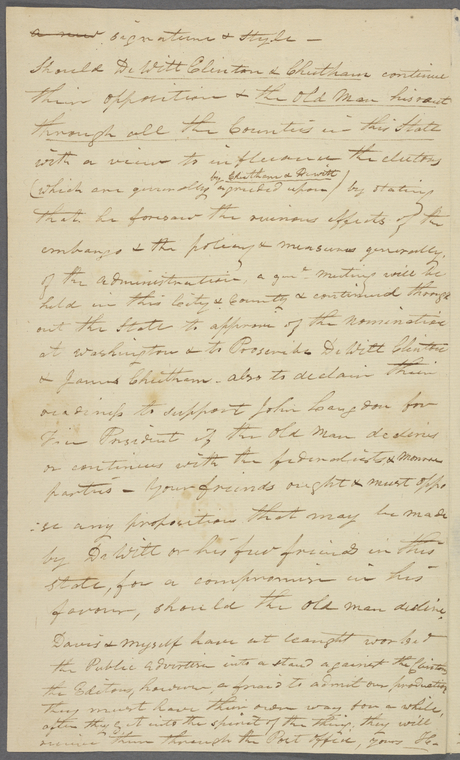 a new signature & style –
Should DeWitt Clinton & Cheetham continue
their opposition & the Old Man his rout
through all the Counties in this State
with a view to influence the electors
by Cheetham & Dewitt
(which are generally agreeded upon) by stating
that he foresaw the ruinous effects of the
embargo & the policy & measures generally
of the administration, a genl meeting will be
held in this City & County & continued through
out the State to approve of the nomination
at Washington & to Proscribe DeWitt Clinton
& James Cheetham – also to declair their
readiness to support John Langdon for
Vice President if the Old Man declines
or continues with the federalists & Monroe
parties – Your friends ought & must oppo
:se any proposition that may be made
by DeWitt or his few friends in this
State, for a compromise in his
favour, should the old man decline,
Davis & myself have at leanght worked
the Public Advertiser into a stand against the Clintons
the Editors, however, afraid to admit our productions
they must have their own way for a while,
after they get into the spirit of the thing, they will
receive them through the Post Office, yours &c.